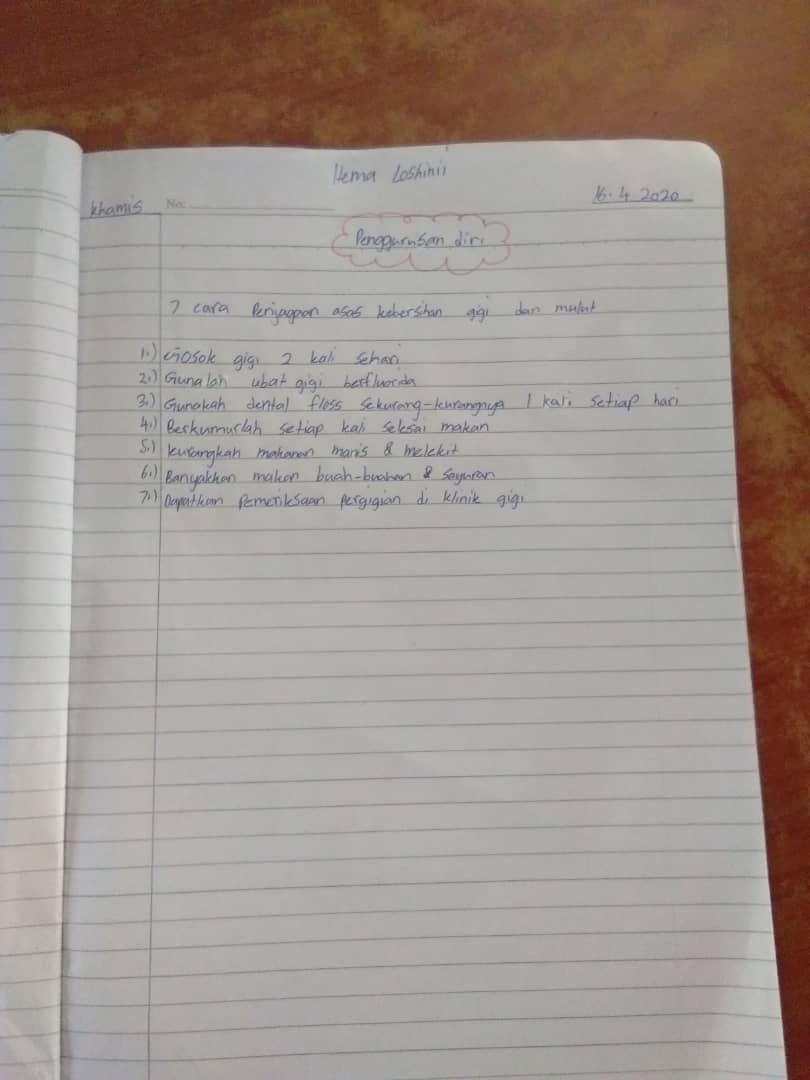 Hema Loshinii
16.4.2020
Khamis No:
Penggurusan diri
7 cara Penjagaan asas kebersihan gigi dan mulut
1.) Gosok gigi 2 kali sehari
2.) Gunalah ubat gigi berfluorida
3.) Gunakah dental floss sekurang-kurangnya 1 kali setiap hari
4.) Berkumurlah setiap kali selesai makan
5.) kurangkah makanan manis & melekit
6.) Banyakkan makan buah-buahan & sayuran
7.) Dapatkan Pemeriksaan pergigian di klinik gigi